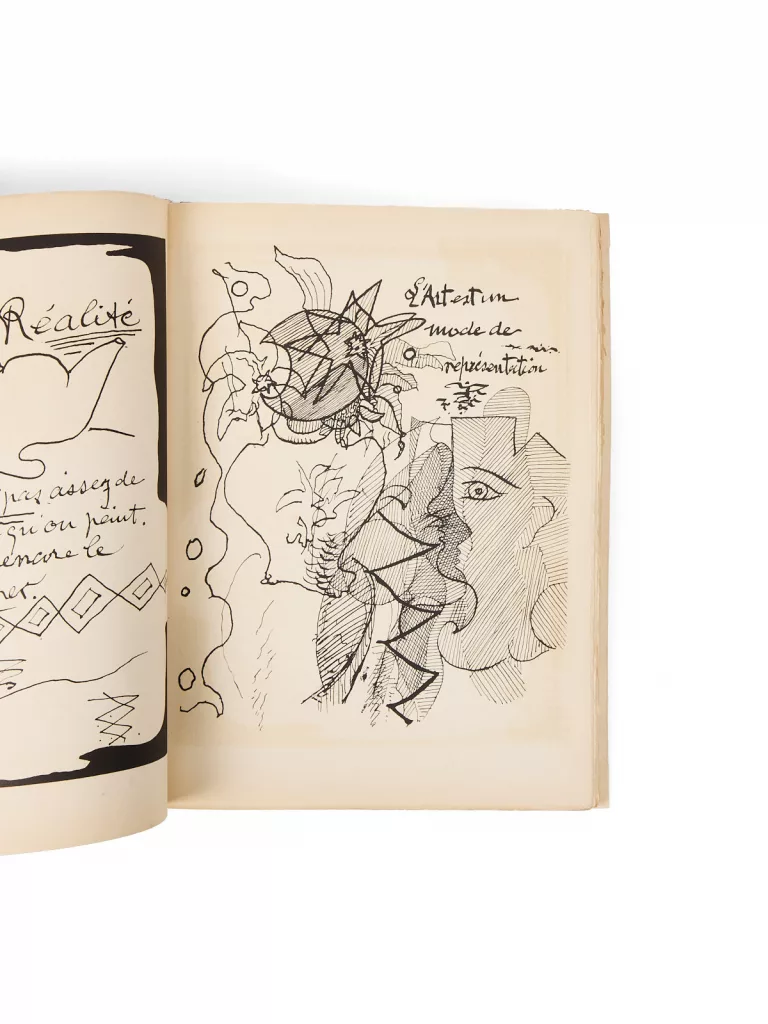 Réalité
pas assez de
qu'on peint.
encore le
L'Art est un
mode de
représentation